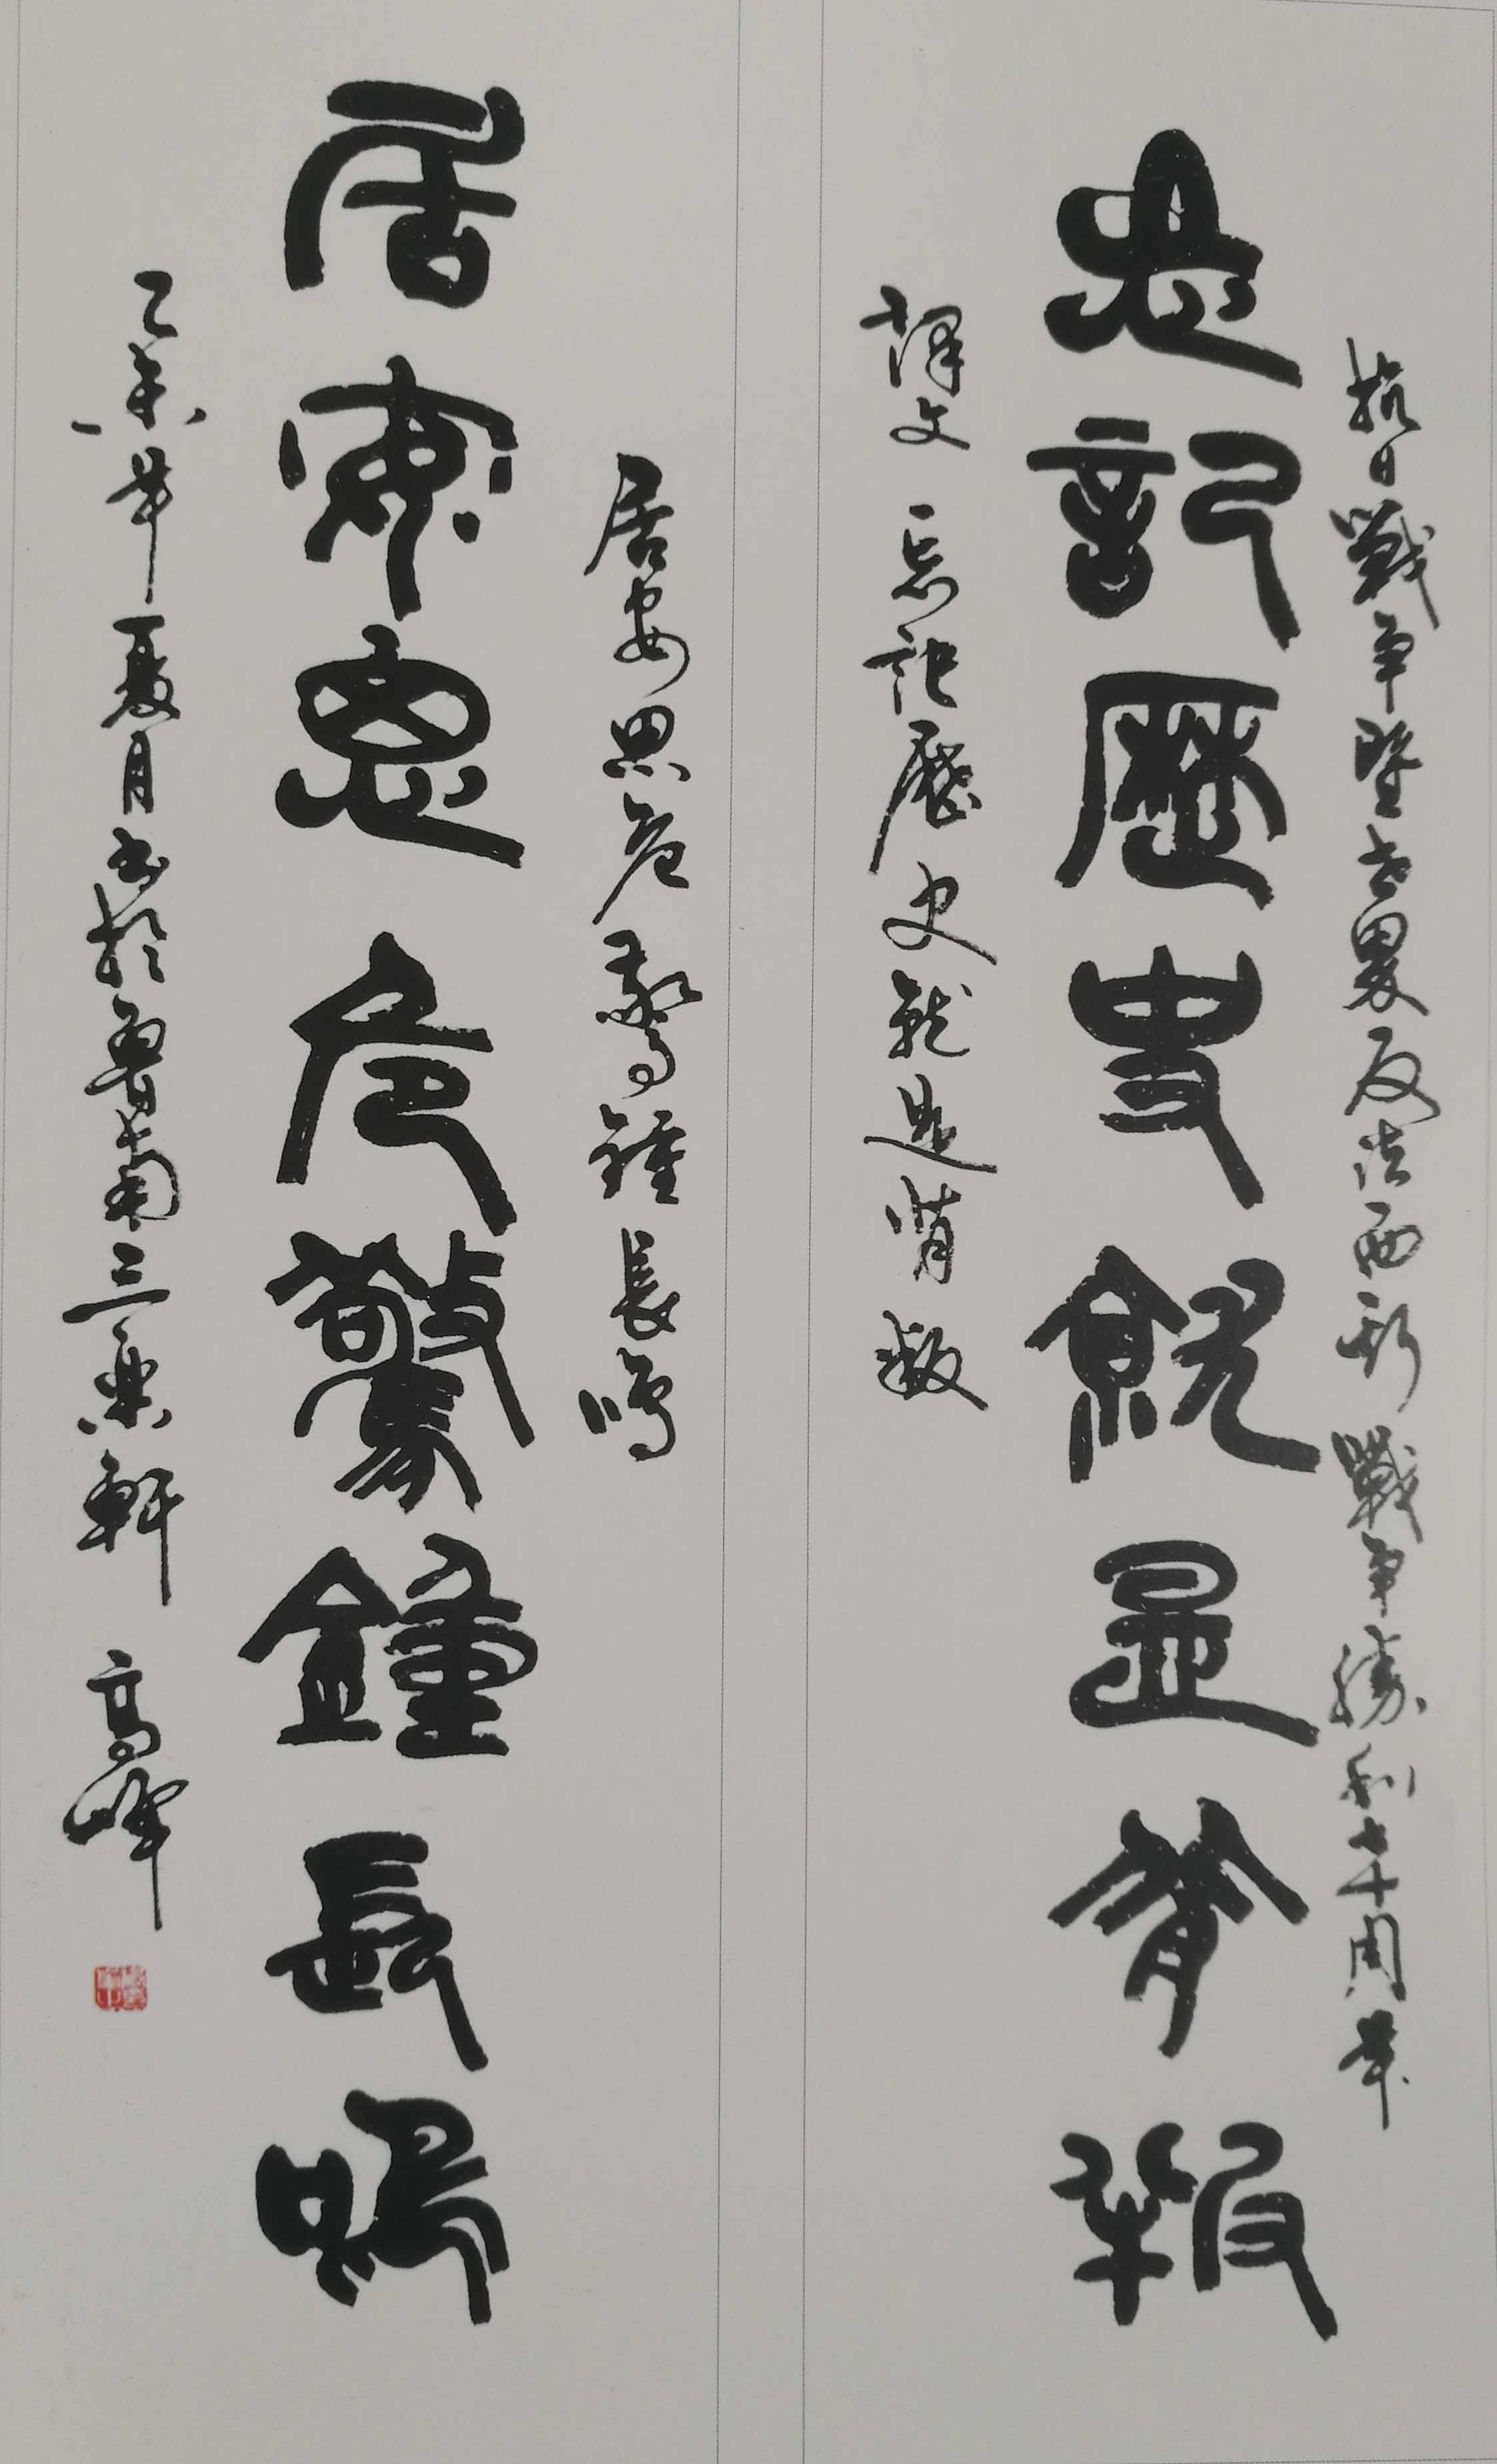 抗日戰争暨世界反法西斯戰争勝利七十周年
忘記歷史就是背叛
譯文 忘記歷史就是背叛
居安思危驚鐘長鳴
居安思危驚鐘長鳴
乙未年夏月書於魯南三樂軒 高峰